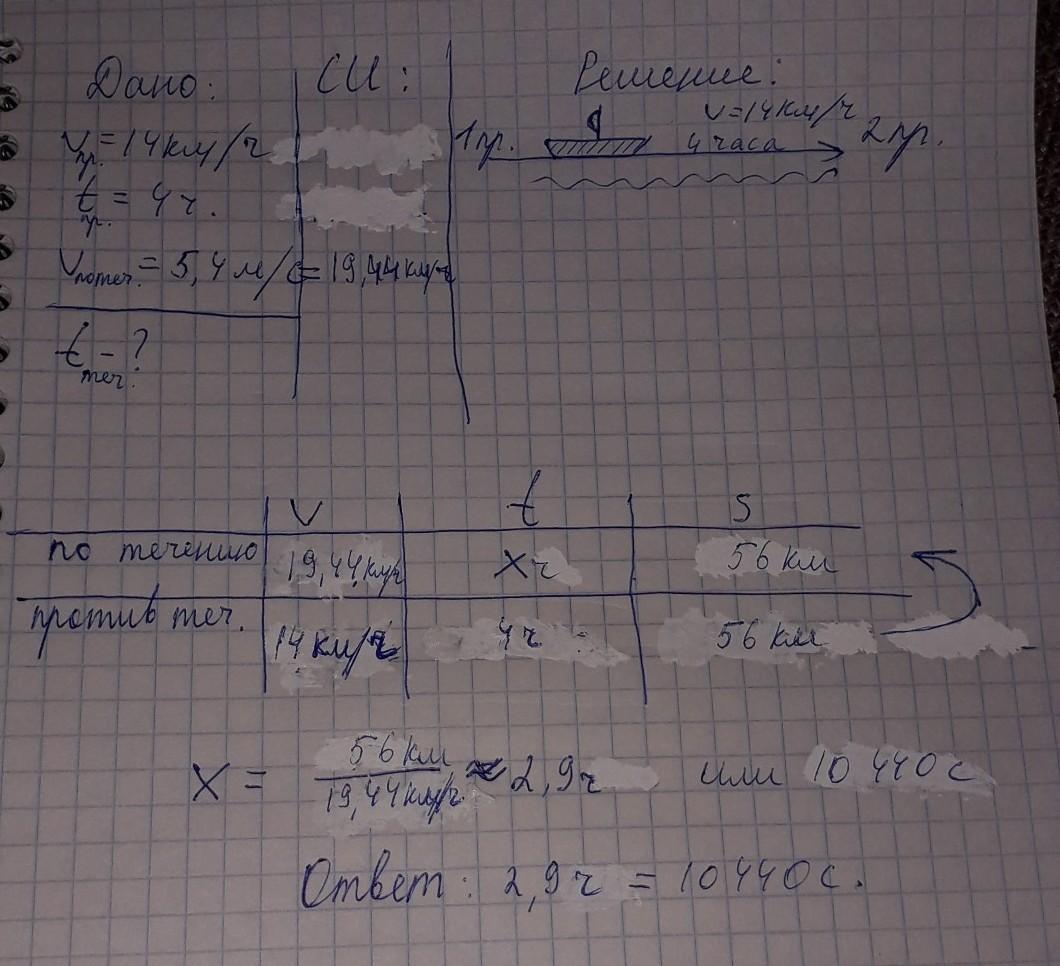 Дано: СИ: Решение:
vпр. = 14 км/ч 1 пр. v = 14 км/ч 4 часа 2 пр.
tпр. = 4 ч.
vпотеч. = 5,4 м/с = 19,44 км/ч
tтеч. - ?
v t s
по течению 19,44 км/ч x ч 56 км
против теч. 14 км/ч 4 ч 56 км
x = 56 км / 19,44 км/ч ≈ 2,9 ч или 10 440 с
Ответ: 2,9 ч = 10 440 с.